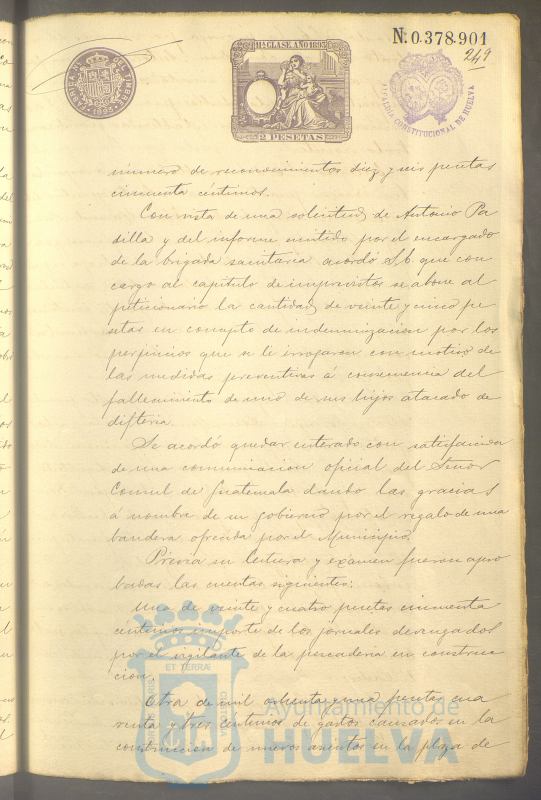 Nº 0.378.901
249
11ª CLASE. AÑO 1893
2 PESETAS
ALCALDIA CONSTITUCIONAL DE HUELVA
número de reconocimientos diez y seis pesetas
cincuenta centimos.
Con vista de una solicitud de Antonio Pa
dilla y del informe emitido por el encargado
de la brigada sanitaria acordó S.E. que con
cargo al capitulo de imprevistos se abone al
peticionario la cantidad de veinte y cinco pe
setas en concepto de indemnizacion por los
perjuicios que se le irrogaron con motivo de
las medidas preventivas á consecuencia del
fallecimiento de uno de sus hijos atacado de
difteria.
Se acordó quedar enterado con satisfaccion
de una comunicacion oficial del Señor
Consul de Guatemala dando las gracias
á nombre de su gobierno por el regalo de una
bandera ofrecida por el Municipio.
Previa su lectura y examen fueron apro
badas las cuentas siguientes:
Una de veinte y cuatro pesetas cincuenta
centimos importe de los jornales devengados
por el vigilante de la pescaderia en construc
cion.
Otra de mil ochenta y una pesetas cua
renta y tres centimos de gastos causados en la
construccion de nuevos asientos en la plaza de
Ayuntamiento de
HUELVA